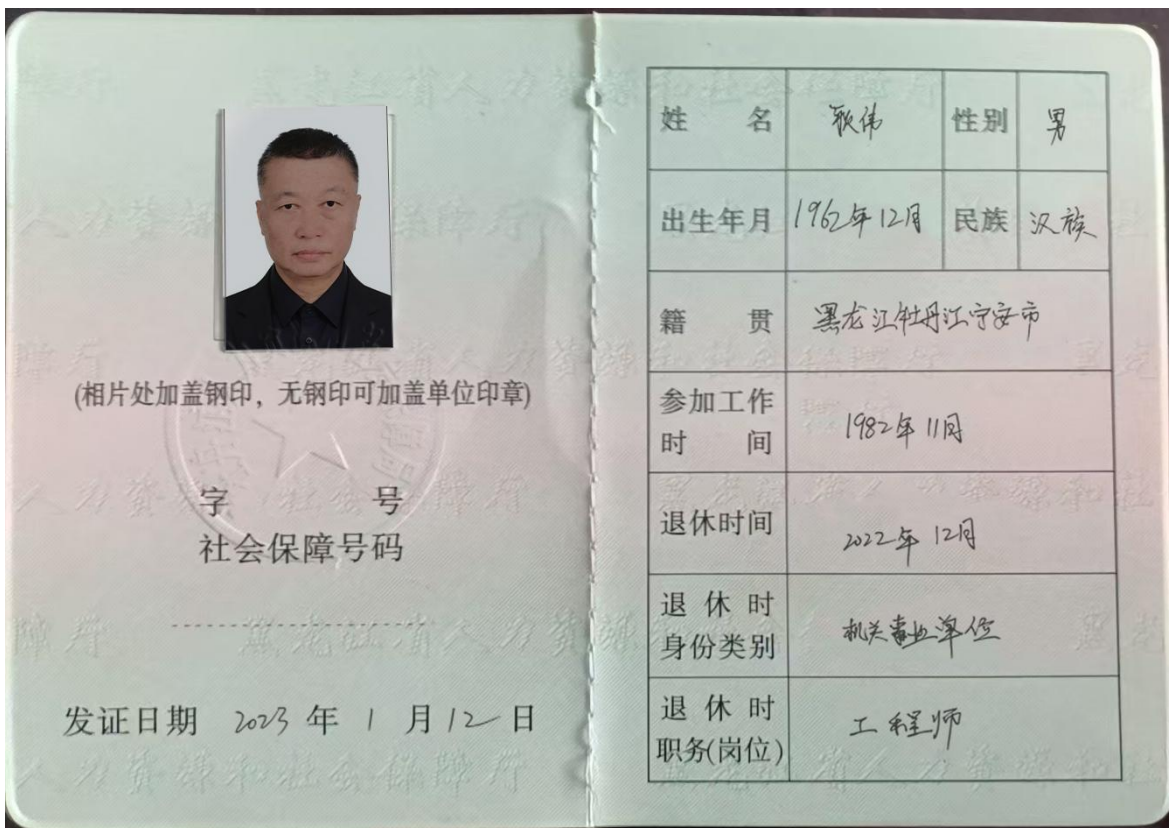 (相片处加盖钢印，无钢印可加盖单位印章)
字 号
社会保障号码
发证日期 2023 年 1 月 12 日
姓名 耿伟 性别 男
出生年月 1962年12月 民族 汉族
籍贯 黑龙江牡丹江宁安市
参加工作时间 1982年11月
退休时间 2022年12月
退休时身份类别 机关事业单位
退休时职务(岗位) 工程师